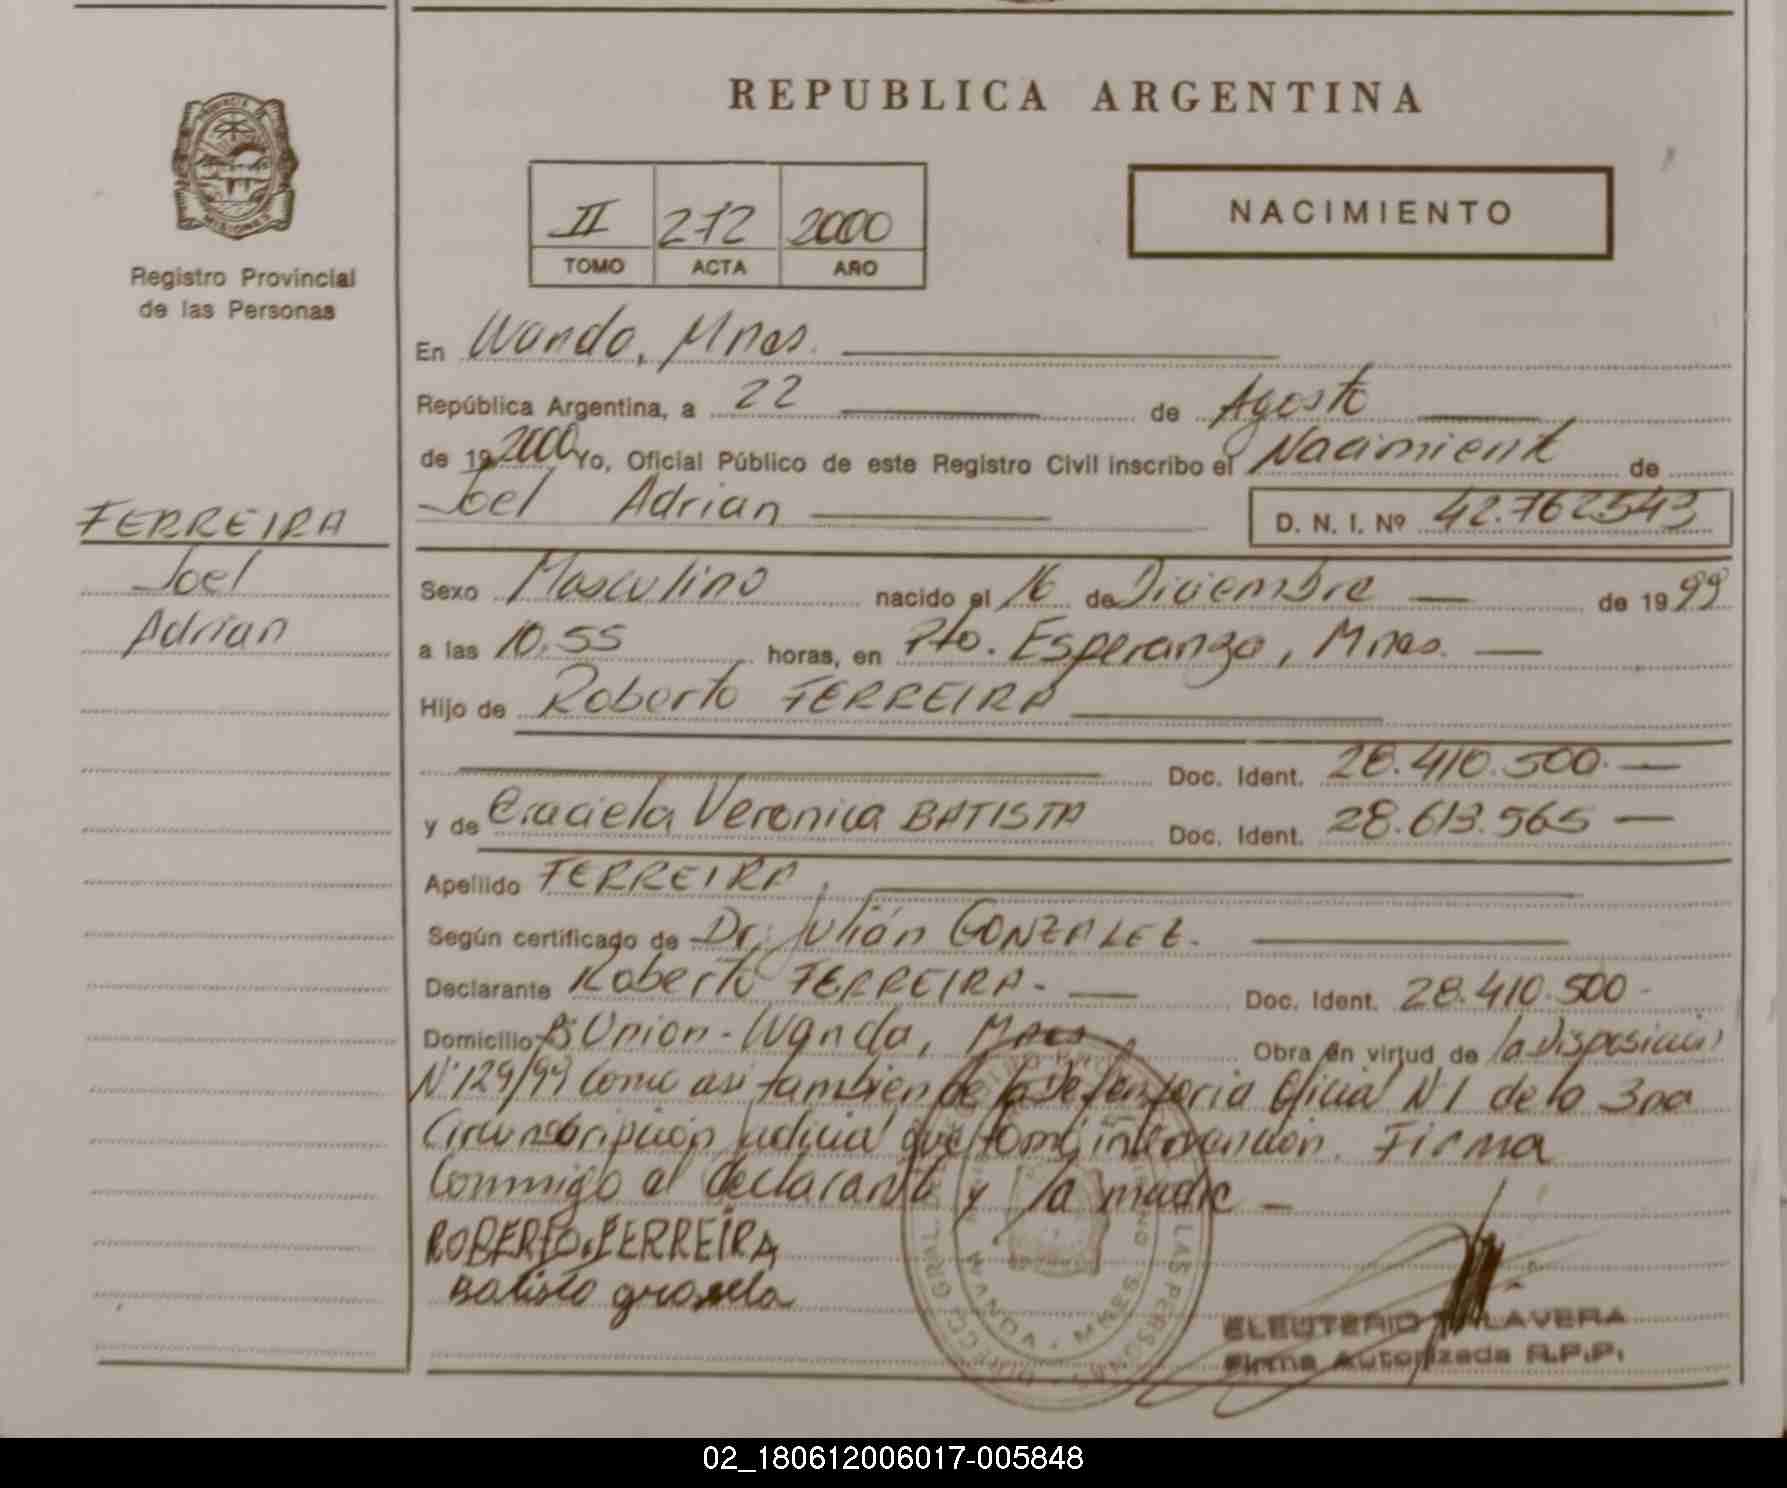 REPUBLICA ARGENTINA
MISIONES
Registro Provincial
de las Personas
II 272 2000
TOMO ACTA AÑO
NACIMIENTO
FERREIRA
Joel
Adrian
En Wanda, Mnes.
República Argentina, a 22 de Agosto
de 19 2000 Yo, Oficial Público de este Registro Civil inscribo el Nacimient de
Joel Adrian D. N. I. Nº 42.762543
Sexo Masculino nacido el 16 de Diciembre de 1999
a las 10.55 horas, en Pto. Esperanza, Mnes.
Hijo de Roberto FERREIRA
Doc. Ident. 28.410.500.
y de Graciela Veronica BATISTA Doc. Ident. 28.613.565
Apellido FERREIRA.
Según certificado de Dr. Julián GONZALEZ.
Declarante Roberto FERREIRA. Doc. Ident. 28.410.500
Domicilio Bº Union - Wanda, Mnes. Obra en virtud de la Disposición
Nº 129/99 Como asi tambien de la Defensoria Oficial Nº 1 de la 3ra
Circunscripción Judicial que tomó intervención. Firma
Conmigo el declarante y la madre
ROBERTO.FERREIRA
Batista grasiela
WANDA • MNES
LAS PERSONAS
ELEUTERIO TALAVERA
Firma Autorizada R.P.P.
02_180612006017-005848